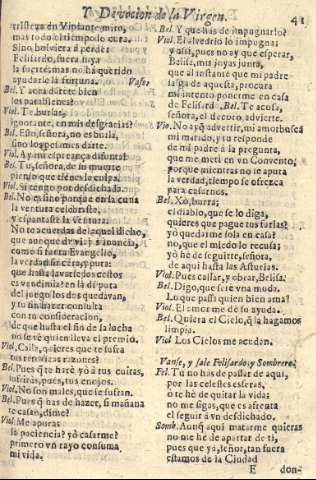 Y Devocion de la Virgen. 41
mas todo lo tiempo lo cura.
Sino, bolviera à perder
Felisardo, fuera suya
la suerte; mas no ha querido
ayudarle la fortuna. Vase.
Bel. Y aora darète bien
los parabienes?
Viol. Te burlas,
ignorante, en mis desgracias?
Bel. Esto, señora, no es burla,
sino los pesames darte.
Viol. Ay mi esperança difunta!
Bel. Tu, señora, de tu muerte
pienso que tienes la culpa.
Viol. Si tengo por desdichada.
Bel. No es sino porque en la cuna
la ventura
y espantaste la ventura.
No te acuerdas de aquel dicho,
que aunque de
como si fuera Evangelio,
la verdad
que hasta lavar los cestos
es vendimia? en la disputa
del juego los dos quedavan,
y tu sin hazer consulta
con tu consideracion,
de que hasta el fin de la lucha
no se vè quien lleva el premio.
Viol. Calla, quieres que te sufra
tus necias razones?
Bel. Pues què te harè yo à tus cuitas,
sufriràs, pues, tus enojos.
Viol. No son males, que se sufran.
Bel. Pues q̃ has de hazer, si mañana
te casan, dime?
Viol. Me apuras
la paciencia? yo casarme?
primero vn rayo consuma
mi vida.
Bel. Y que has de impugnarlo?
Viol. El alvedrio lo impugna;
y assi, pues no ay que esperar,
Belisa, mis joyas junta,
que al instante que mi padre
salga de aquesta, procura
mi intento ponerme en casa
de Felisardo. Bel. Te acusa,
señora, el decoro, advierte.
Vio. No ay q̃ advertir, mi amor busca
mi marido, y tu responde
de mi padre à la pregunta,
que me meti en vn Convento,
porque mientras no te apura
la verdad, tiempo se ofrezca
para casarnos.
Bel. Xo, burra;
el diablo, que se lo diga,
quieres que pague tus furias?
yo quedarme sola en casa?
no, que el miedo lo recusa;
yo hè de seguirte, señora,
de aqui hasta las Asturias.
Viol. Pues callar, y obrar, Belisa.
Bel. Digo, que serè vna muda.
Lo que passa quien bien ama!
Viol. El amor me dè su ayuda.
Bel. Quiera el Cielo, q̃ la hagamos
limpia.
Viol Los Cielos me acudan.
Vanse, y sale Felisardo, y Sombrero.
Fel. Tu no has de passar de aqui,
por las celestes esferas,
ò te hè de quitar la vida:
no me sigas, que es afrenta
el seguir à vn desdichado.
Somb. Aunq̃ aqui matarme quieras
no me hè de apartar de ti,
pues que ya, señor, tan fuera
estamos de la Ciudad
E don-